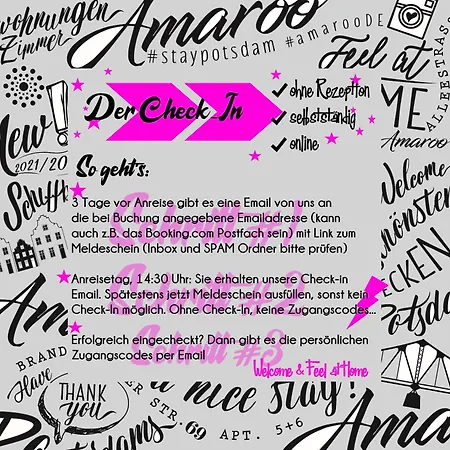 wohnungen
Zimmer
Amaroo
#staypotsdam #amarooDE
Feel at
ME
ALLEESTRAS
Amaroo
New!
2021/20
Der Check_In
ohne Rezeption
selbstständig
online
So geht's:
Schritt #1
3 Tage vor Anreise gibt es eine Email von uns an
die bei Buchung angegebene Emailadresse (kann
auch z.B. das Booking.com Postfach sein) mit Link zum
Meldeschein (Inbox und SPAM Ordner bitte prüfen)
Anreisetag, 14:30 Uhr: Sie erhalten unsere Check-in
Email. Spätestens jetzt Meldeschein ausfüllen, sonst kein
Check-In möglich. Ohne Check-In, keine Zugangscodes...
Schritt #3
Erfolgreich eingecheckt? Dann gibt es die persönlichen
Zugangscodes per Email
Welcome & Feel atHome
Welcome
ECKEN
otsdam
Am
BRAND
Have
THANK
you
a nice stay!
ER STR. 69 APT. 5+6
Amaroo